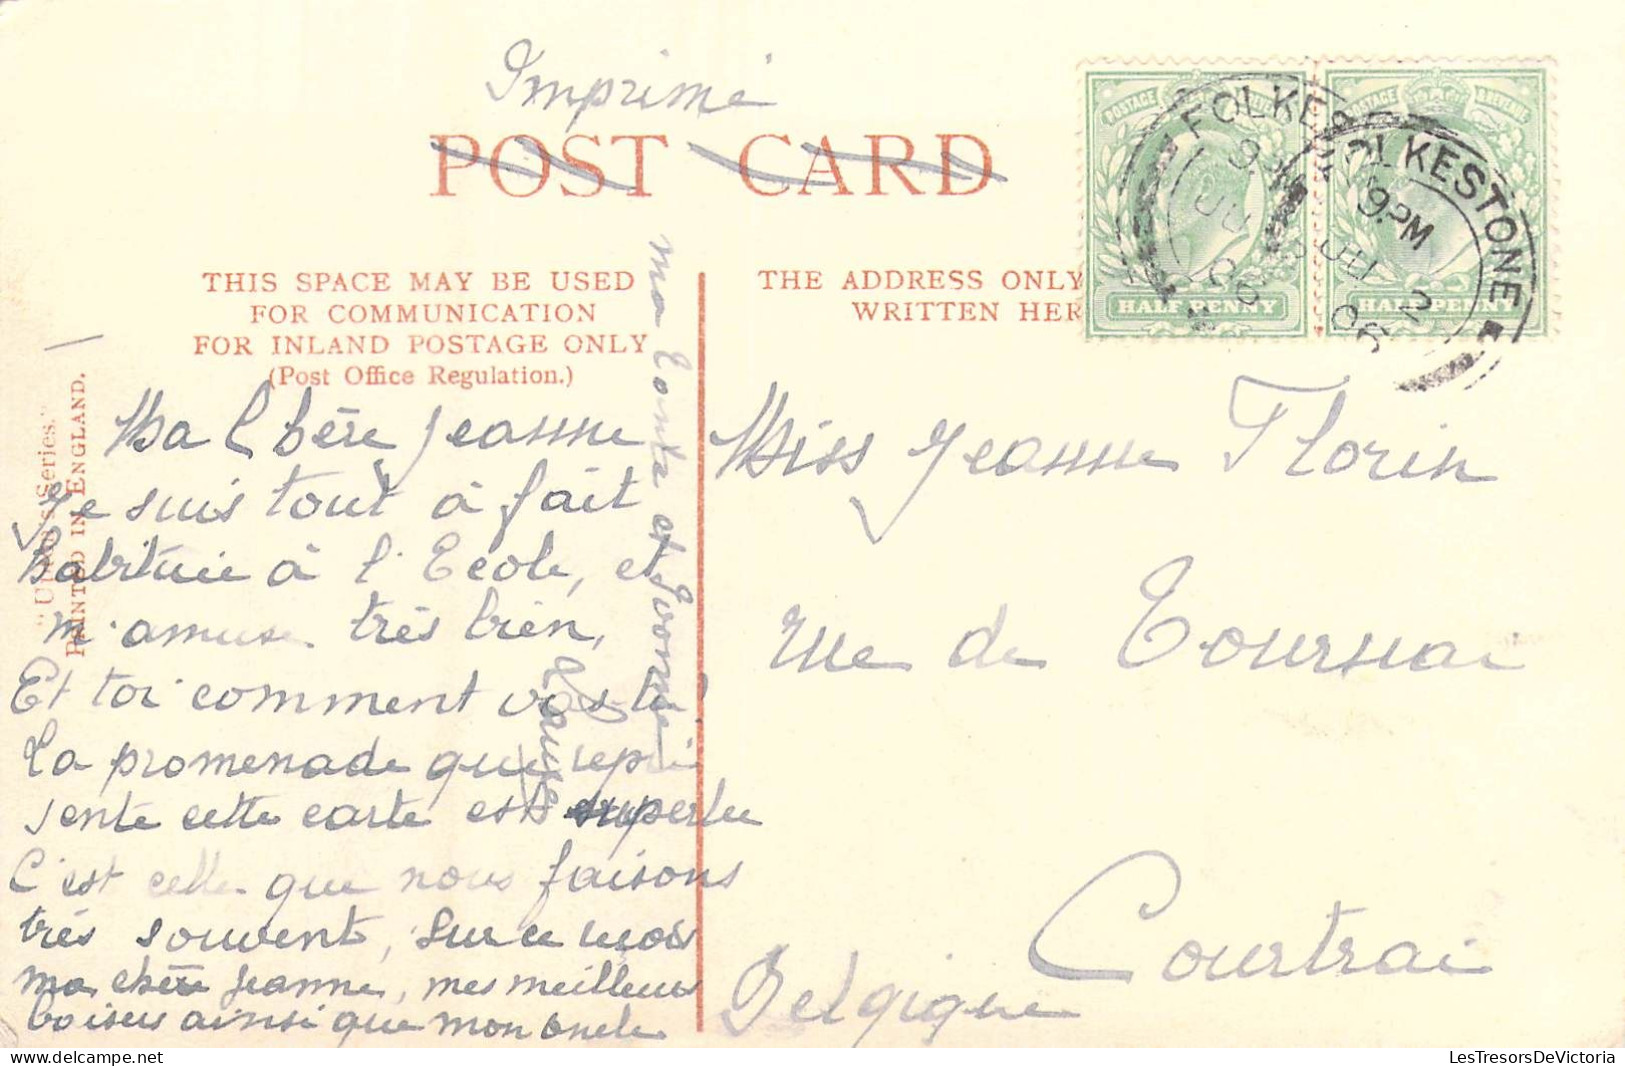 Imprimé
POST CARD
THIS SPACE MAY BE USED
FOR COMMUNICATION
FOR INLAND POSTAGE ONLY
(Post Office Regulation.)
THE ADDRESS ONLY
WRITTEN HER
POSTAGE
HALF PENNY
POSTAGE & REVENUE
HALF PENNY
FOLKES
9
JU
06
OLKESTONE
9 PM
JU 2
06
Series."
PRINTED IN ENGLAND.
Ma Chère Jeanne
Je suis tout à fait
habituée à l'Ecole, et
m'amuse très bien,
Et toi comment vas-tu!
La promenade que repré
sente cette carte est superbe
C'est celle que nous faisons
très souvent, sur ce
ma chère Jeanne, mes meilleurs
baisers ainsi que mon oncle
ma tante et Yvonne
Miss Jeanne Florin
rue de Tournai
Courtrai
Belgique
LesTresorsDeVictoria